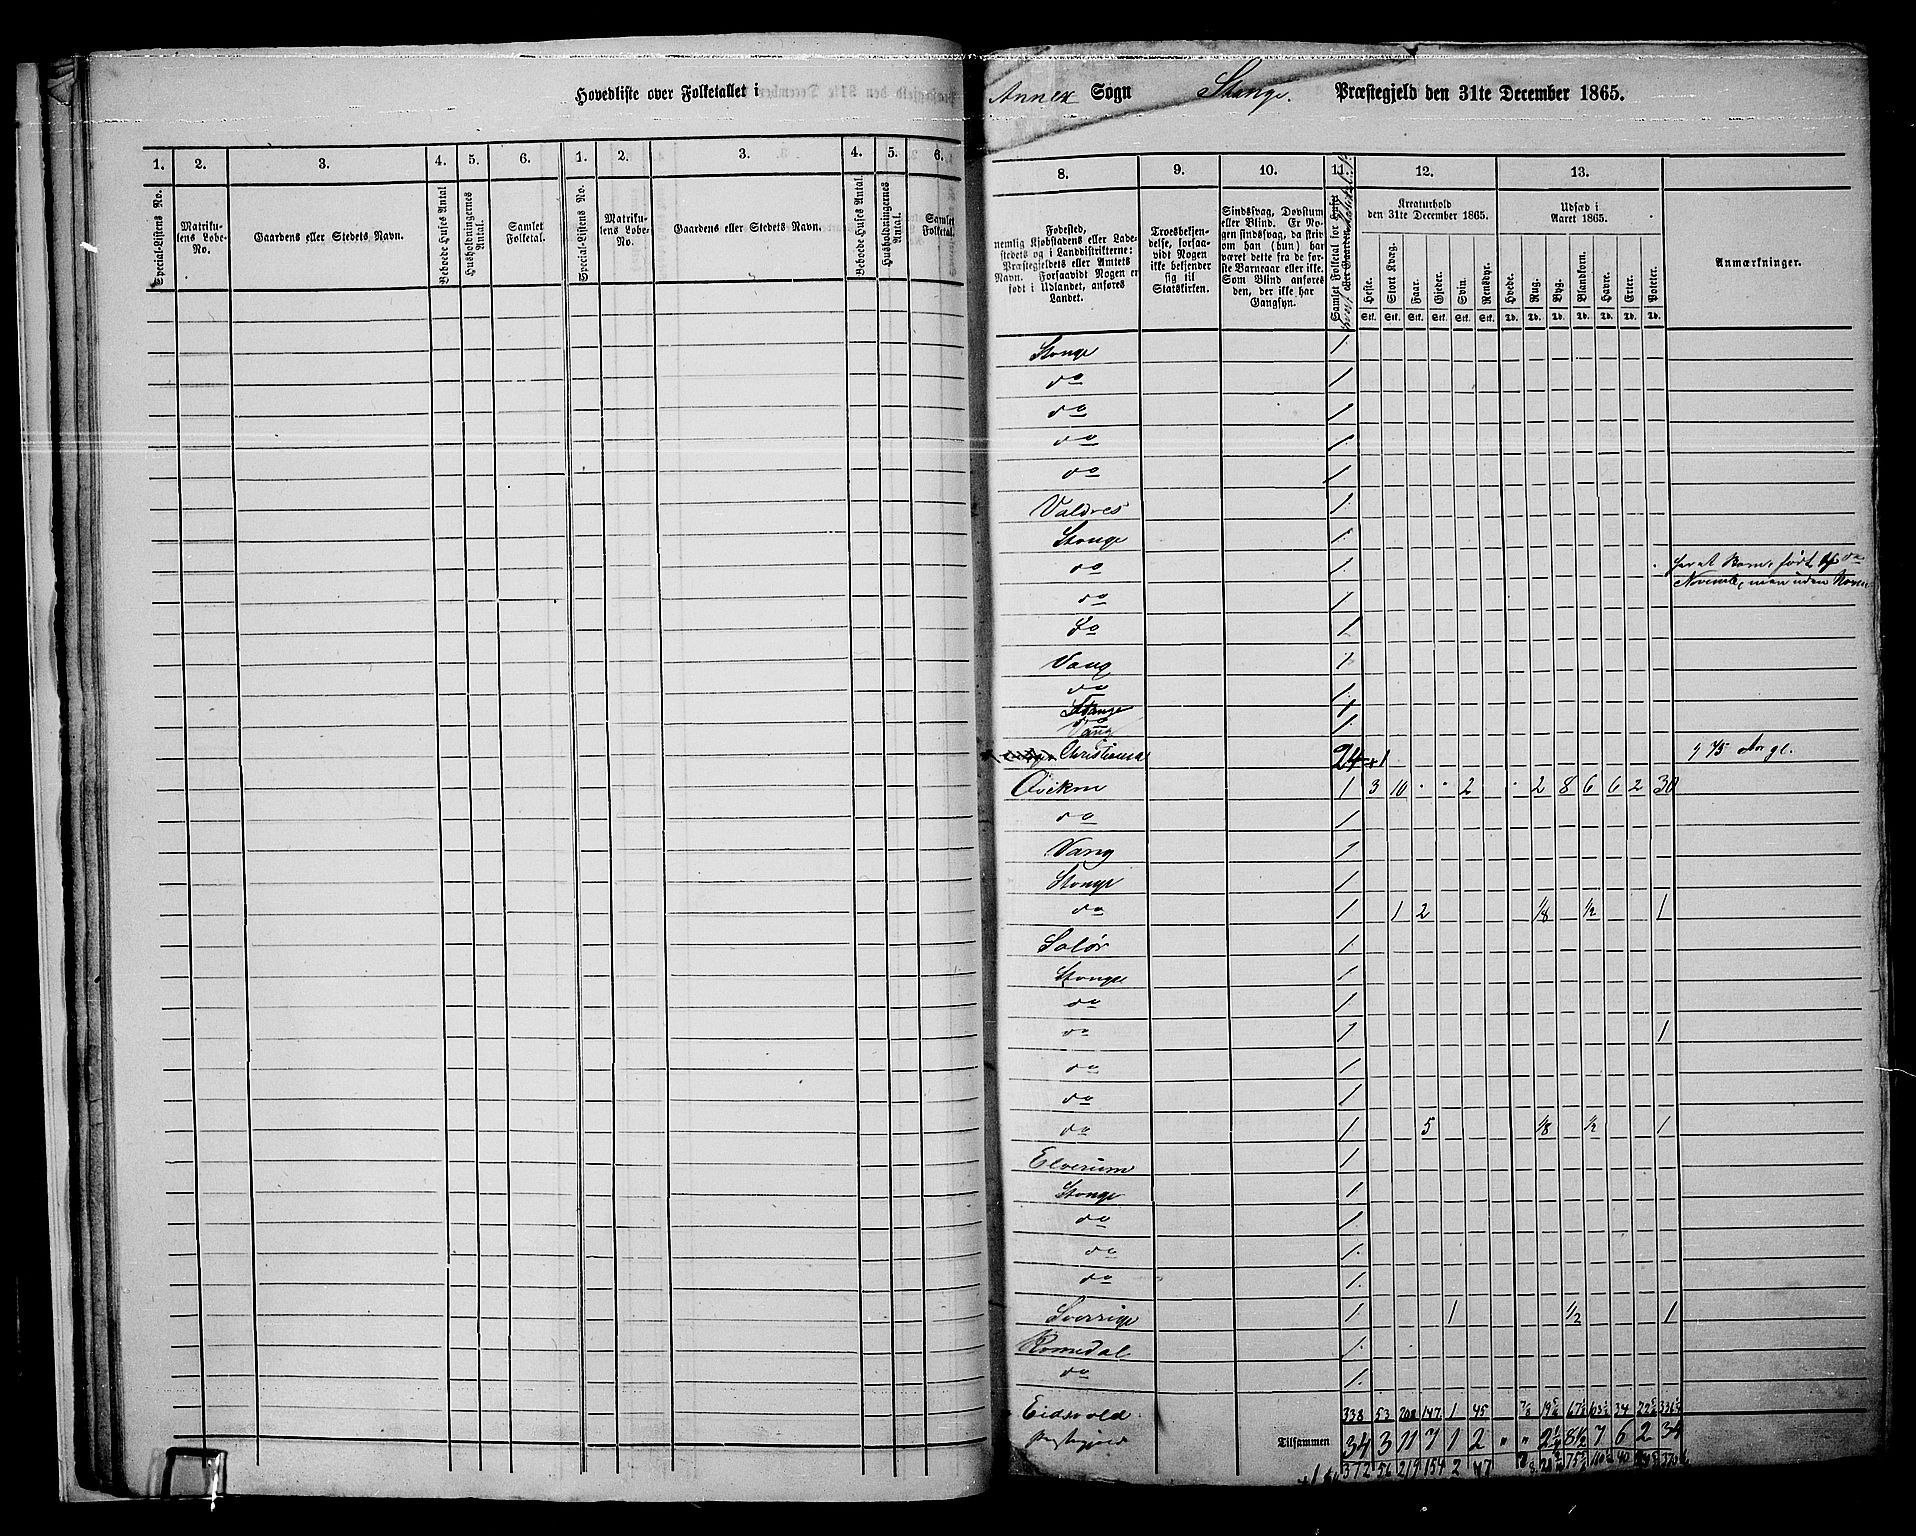 Hovedliste over Folketallet i
1. 2. 3. 4. 5. 6. 1. 2. 3. 4. 5. 6.
Special-Listens No.
Matriku-
lens Løbe-
No.
Gaardens eller Stedets Navn.
Beboede Huses Antal
Husholdningernes
Antal.
Samlet
Folketal.
Special-Listens No.
Matriku-
lens Løbe-
No.
Gaardens eller Stedets Navn.
Beboede Huses Antal.
Husholdningernes
Antal.
Samlet
Folketal.
Annex Sogn Stange. Præstegjeld den 31te December 1865.
8. 9. 10. 11. 12. 13.
Fødested,
nemlig Kjøbstadens eller Lade-
stedets og i Landdistrikterne:
Præstegjeldets eller Amtets
Navn. Forsaavidt Nogen er
født i Udlandet, anføres
Landet.
Troesbekjen-
delse, forsaa-
vidt Nogen
ikke bekjender
sig til
Statskirken.
Sindssvag, Døvstum
eller Blind. Er No-
gen sindssvag, da skriv
om han (hun) har
været dette fra de før-
ste Barneaar eller ikke.
Som Blind anføres
den, der ikke har
Gangsyn.
Samlet Folketal for
Kreaturhold
den 31te December 1865.
Heste. Stort Kvæg. Faar. Gjeder. Svin. Rensdyr.
Stk. Stk. Stk. Stk. Stk. Stk.
Udsæd i
Aaret 1865.
Hvede. Rug. Byg. Blandkorn. Havre. Erter. Poteter.
Td. Td. Td. Td. Td. Td. Td.
Anmærkninger.
Stange 1
do 1
do 1
do 1
do 1
Valdres 1
Stange 1
do 1 født
do 1
do 1
Vang 1
do 1
Stange 1
do
Vang 1
Christiania 24 + 1
1 3 10 2 2 8 6 6 2 30
do 1
Vang 1
Stange 1
do 1 1 2 1/8 1/2 1
Solør 1
Stange 1
do 1
do 1 1
do 1
do 1
do 1 5 1/8 1/2 1
Elverum 1
Stange 1
do 1
do 1
do 1
Sverrige 1 1 1/2 1
Romedal 1
do 1
Eidsvold 338 53 208 147 1 45
Tilsammen 34 3 11 7 1 2 " " 2 1/4 8 1/2 7 6 2 34
372 56 219 154 2 47